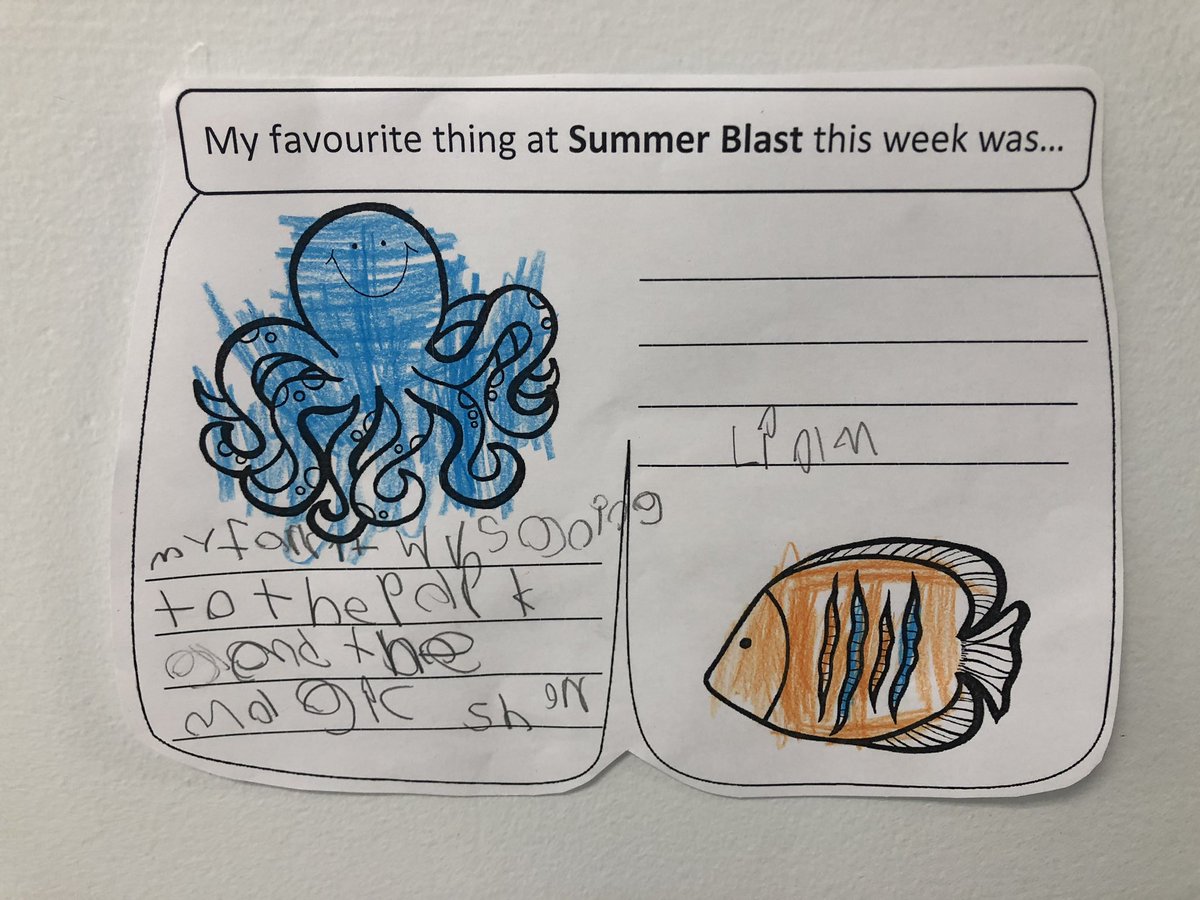 My favourite thing at Summer Blast this week was...
my favrit wus going
to the park
and the
magic show
Liam